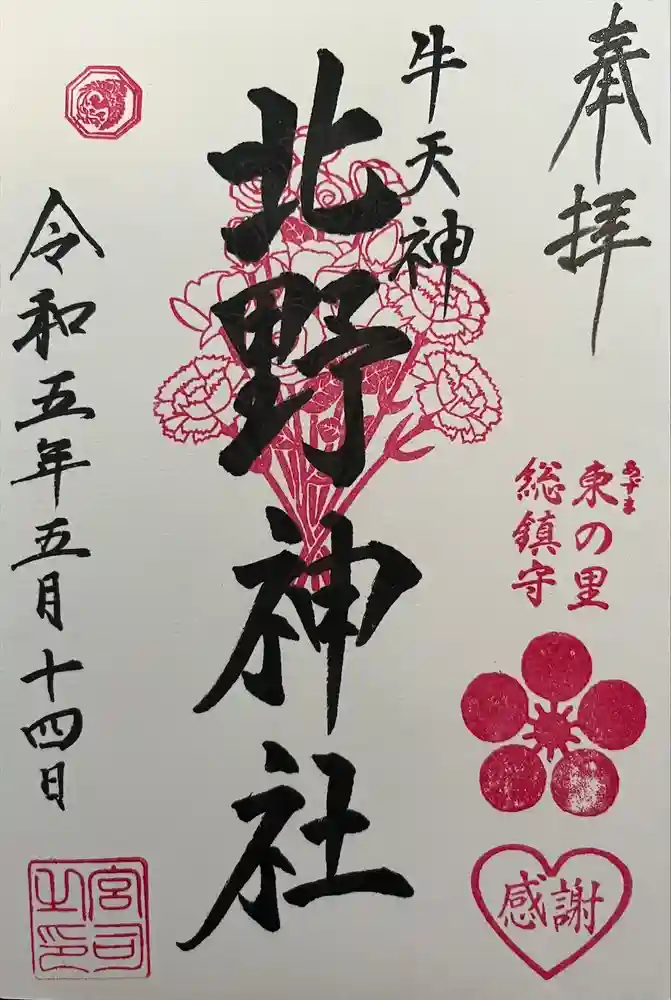 奉拝
東の里
あずま
総鎮守
感謝
牛天神
北野神社
令和五年五月十四日
宮司之印